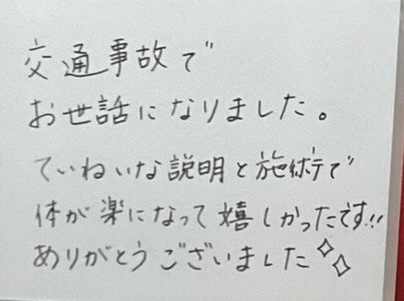 交通事故で
お世話になりました。
ていねいな説明と施術で
体が楽になって嬉しかったです!!
ありがとうございました✧✧